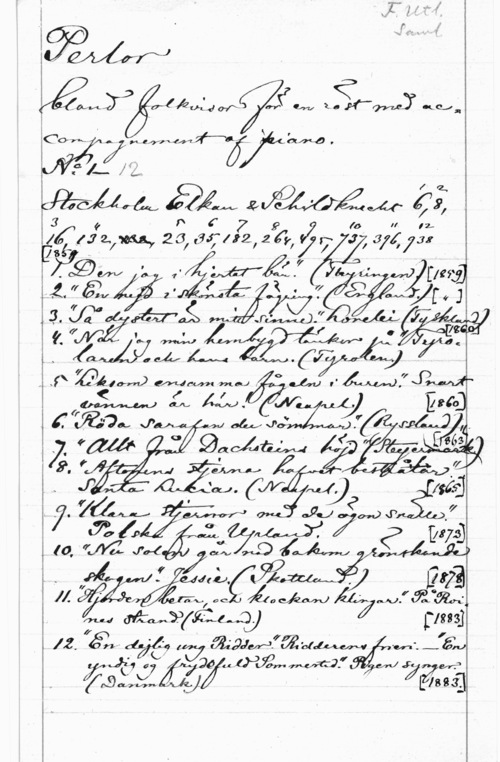 F. Utl.
Saml
Perlor
bland folkvisor för en röst med ac-
compagnement af piano.
No 1- 12
Stockholm Elkan & Schildknecht 1 6, 2 8,
3 16, 132, 5 23, 6 35, 7 182, 264, 9 495, 10 737, 11 396, 12 938
[1859
1. "Den jag i hjertat bär." (Thüringen) [1859]
2. "En mejd i skönsta fägring." (England.) [ " ]
3. "Så dystert är mitt sinne." Lorelei (Tyskland)
4. "När jag min hembygd tänker på." Tyro- [1860]
laren och hans barn. (Tyrolen)
5 "Liksom ensamma fågeln i buren." Snart
vännen är här! (Neapel) [1860]
6. "Röda sarafan du sömmar." (Ryssland) "
7. "Allt från Dachsteins höjd" (Steyermark) [1863]
8. "Aftonens stjerna hafvet bestrålar"
Santa Lucia. (Neapel.) [1865]
9. "Klara stjernor med de ögon snälle."
Polska från Upland. [1873]
10. "Nu solen går ned bakom grönskande
skogen." Jessie. (Skottland.) [1878]
11. "Hjorden betar, och klockan klingar." På Roi-
nes strand (Finland.) [1883]
12. "En dejlig ung Ridder." Ridderens frieri. — "En
yndig og frydefuld Sommertid." Pigen synger
(Danmark) [1883.]